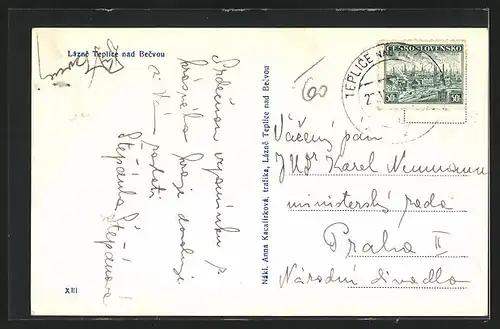 Lázně Teplice nad Bečvou
Srdečnou vzpomínku z
krásného kraje
Vám
Štěpánka Štěpánová
XIII
Nákl. Anna Kacalírková, trafika, Lázně Teplice nad Bečvou
60
TEPLICE NAD
ČESKO-SLOVENSKO
50
50
Vážený pan
JUDr Karel Neumann
ministerský rada
Praha II
Národní divadlo